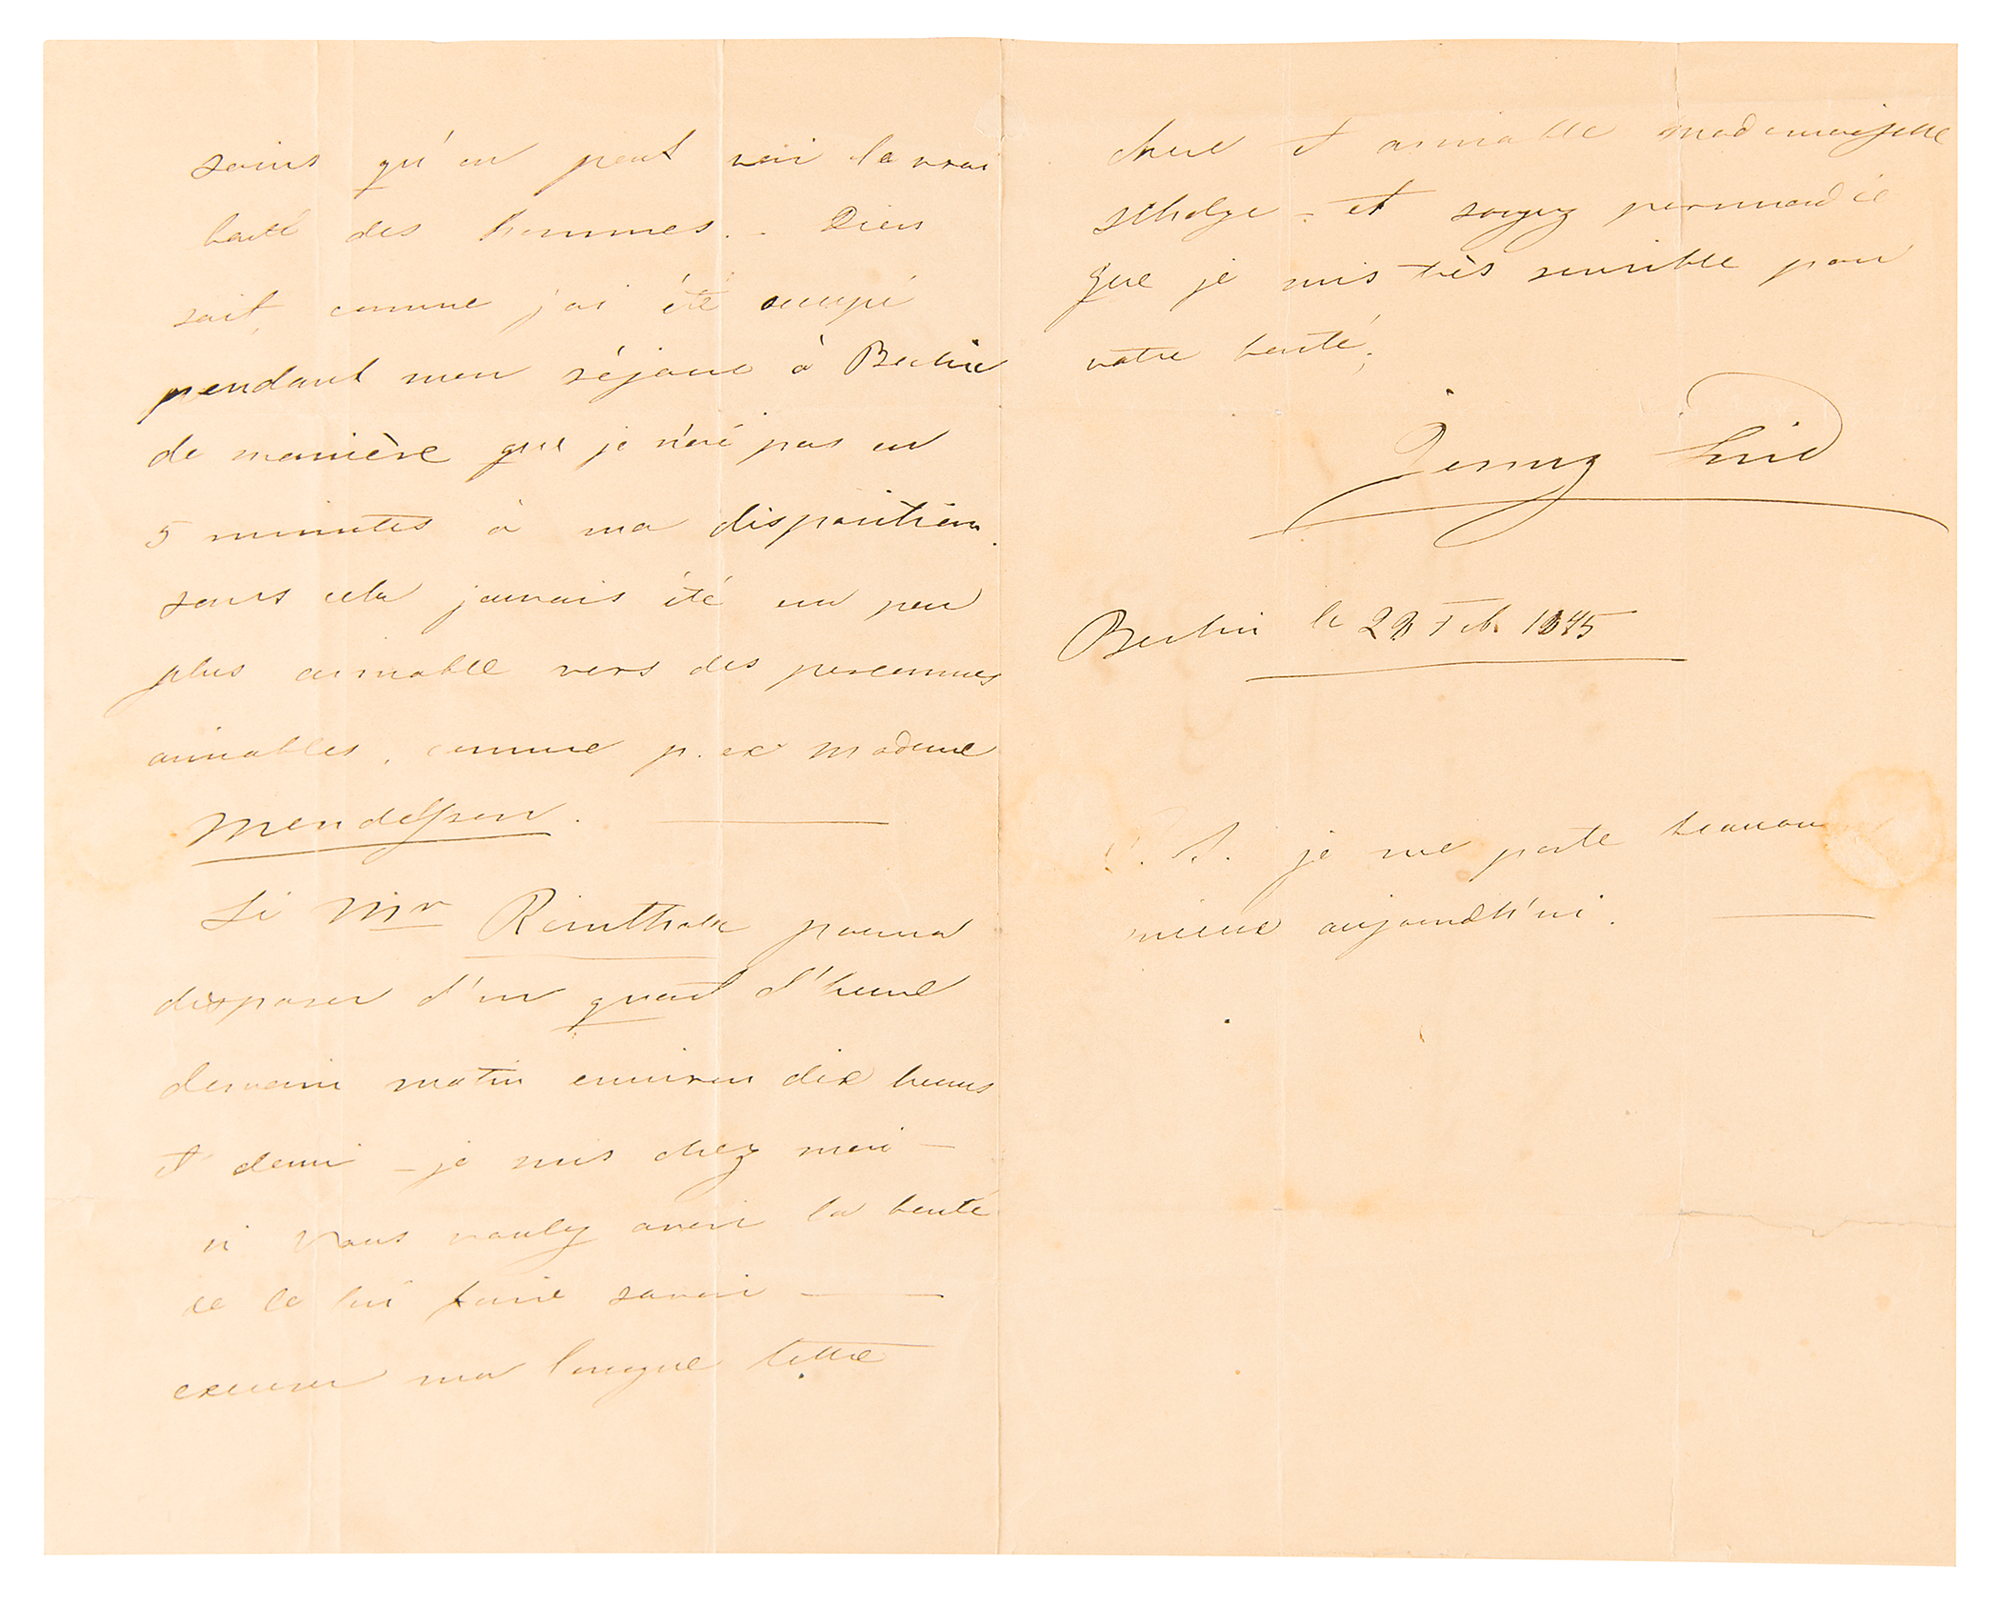 soins qu'on peut voir la vrai
bonté des hommes. - Dieu
sait, comme j'ai été occupé
pendant mon séjour à Berlin
de manière que je n'ai pas eu
5 minutes à ma disposition.
sans cela jamais été un peu
plus aimable vers des personnes
aimables, comme p. ex madame
Mendelsson.
Si Mr pourra
disposer d'un quart d'heure
demain matin environ dix heures
et demi – je suis chez moi –
si Vous voulez avoir la bonté
de le lui faire savoir —
excuser ma longue lettre
chere et aimable mademoiselle
Scholze - et soyez persuadée
que je suis très sensible pour
votre bonté,
Jenny Lind
Berlin le 28 Feb. 1845
P. S. je me porte beaucou
mieux aujourdh'ui.